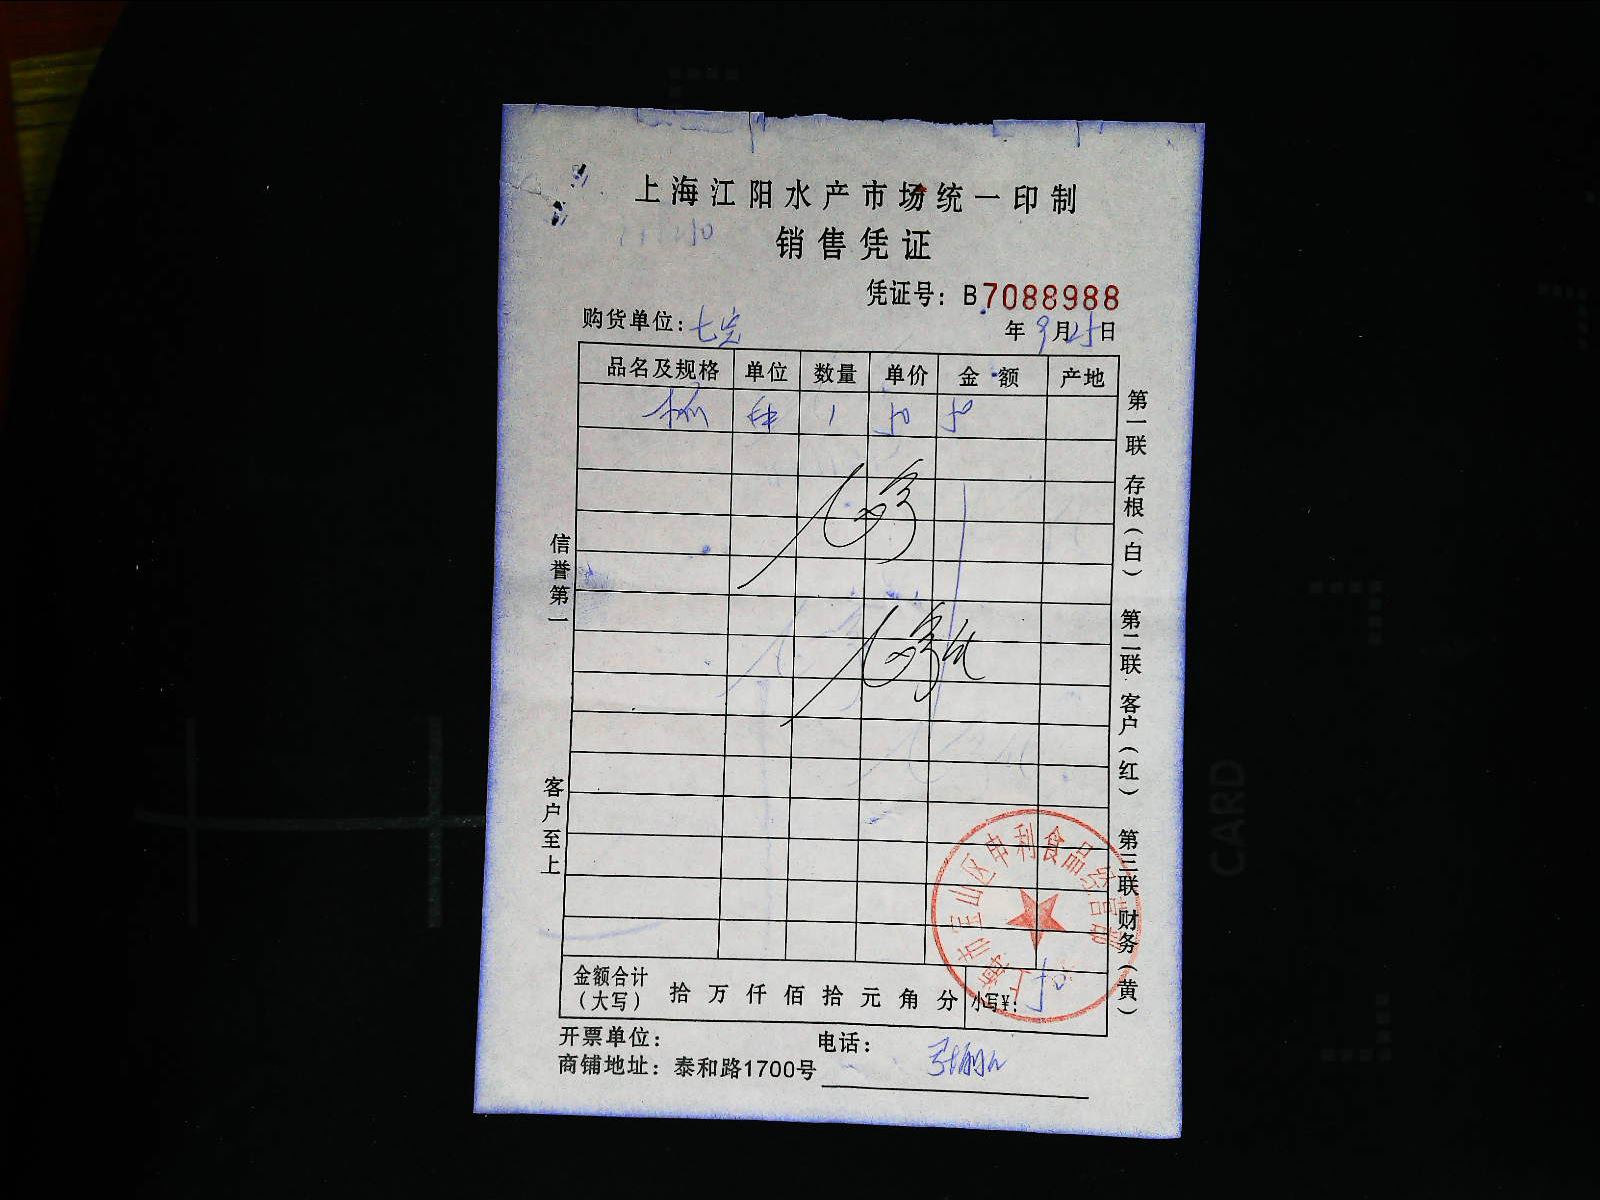 上海江阳水产市场统一印制
销售凭证
凭证号：B7088988
购货单位：七宝
年9月25日
品名及规格 单位 数量 单价 金额 产地
1 50 50
信誉第一
客户至上
第一联 存根（白） 第二联 客户（红） 第三联 财务（黄）
上海市宝山区申利食品经营部
金额合计（大写） 拾 万 仟 佰 拾 元 角 分 小写¥：50
开票单位： 电话：
商铺地址：泰和路1700号
CARD